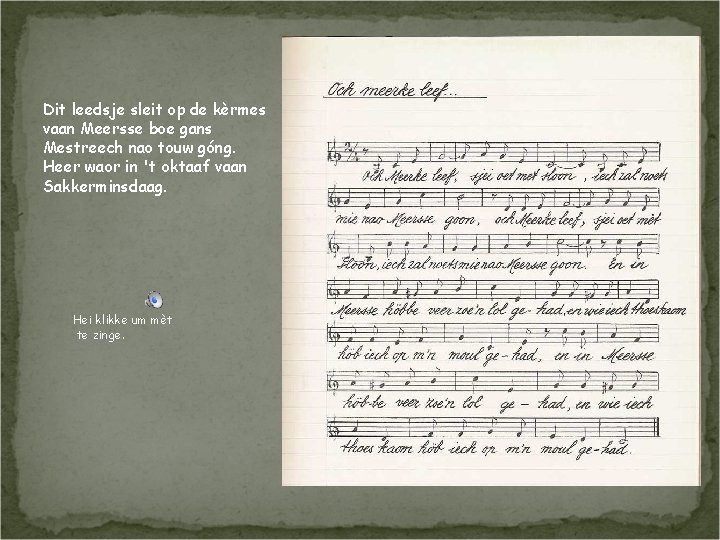 Dit leedsje sleit op de kèrmes
vaan Meersse boe gans
Mestreech nao touw góng.
Heer waor in 't oktaaf vaan
Sakkerminsdaag.
Hei klikke um mèt
te zinge.
Och meerke leef...
Och Meerke leef, sjei oet met sloon, iech zal noets
mie nao Meersse goon, och Meerke leef, sjei oet mèt
sloon, iech zal noets mie nao Meersse goon. En in
Meersse höbbe veer zoe'n lol ge-had, en wie iech thoes kaom
höb iech op m'n moul ge-had, en in Meersse
höb-be veer zoe'n lol ge-had, en wie iech
thoes kaom höb iech op m'n moul ge-had.